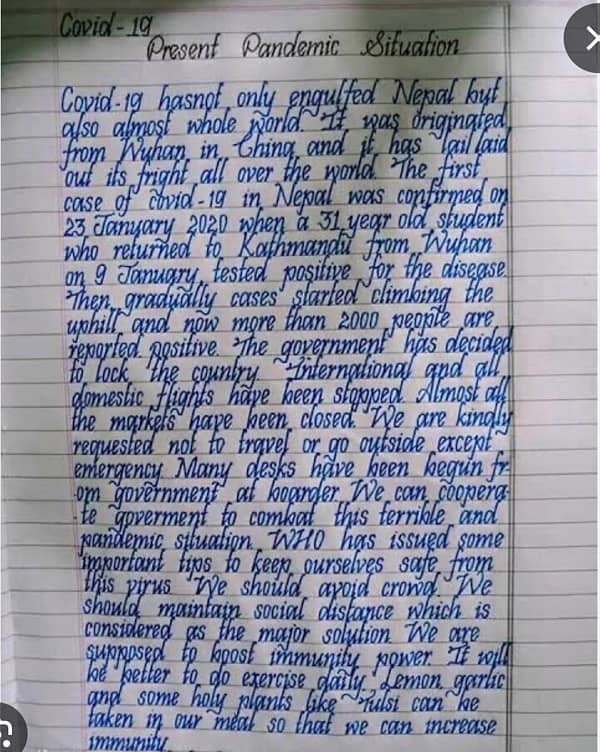 Covid-19
Present Pandemic Situation
Covid-19 hasnot only engulfed Nepal but
also almost whole world. It was originated
from Wuhan in China and it has lail laid
out its fright all over the world. The first
case of covid-19 in Nepal was confirmed on
23 January 2020 when a 31 year old student
who returned to Kathmandu from Wuhan
on 9 January, tested positive for the disease.
Then gradually cases started climbing the
uphill and now more than 2000 people are
reported positive. The government has decided
to lock the country. International and all
domestic flights have been stopped. Almost all
the markets have been closed. We are kindly
requested not to travel or go outside except
emergency. Many desks have been begun fr-
om government at boarder. We can coopera-
-te goverment to combat this terrible and
pandemic situation. WHO has issued some
important tips to keep ourselves safe from
this virus. We should avoid crowd. We
should maintain social distance which is
considered as the major solution. We are
supposed to boost immunity power. It will
be better to do exercise daily. Lemon, garlic
and some holy plants like Tulsi can be
taken in our meal so that we can increase
immunity.